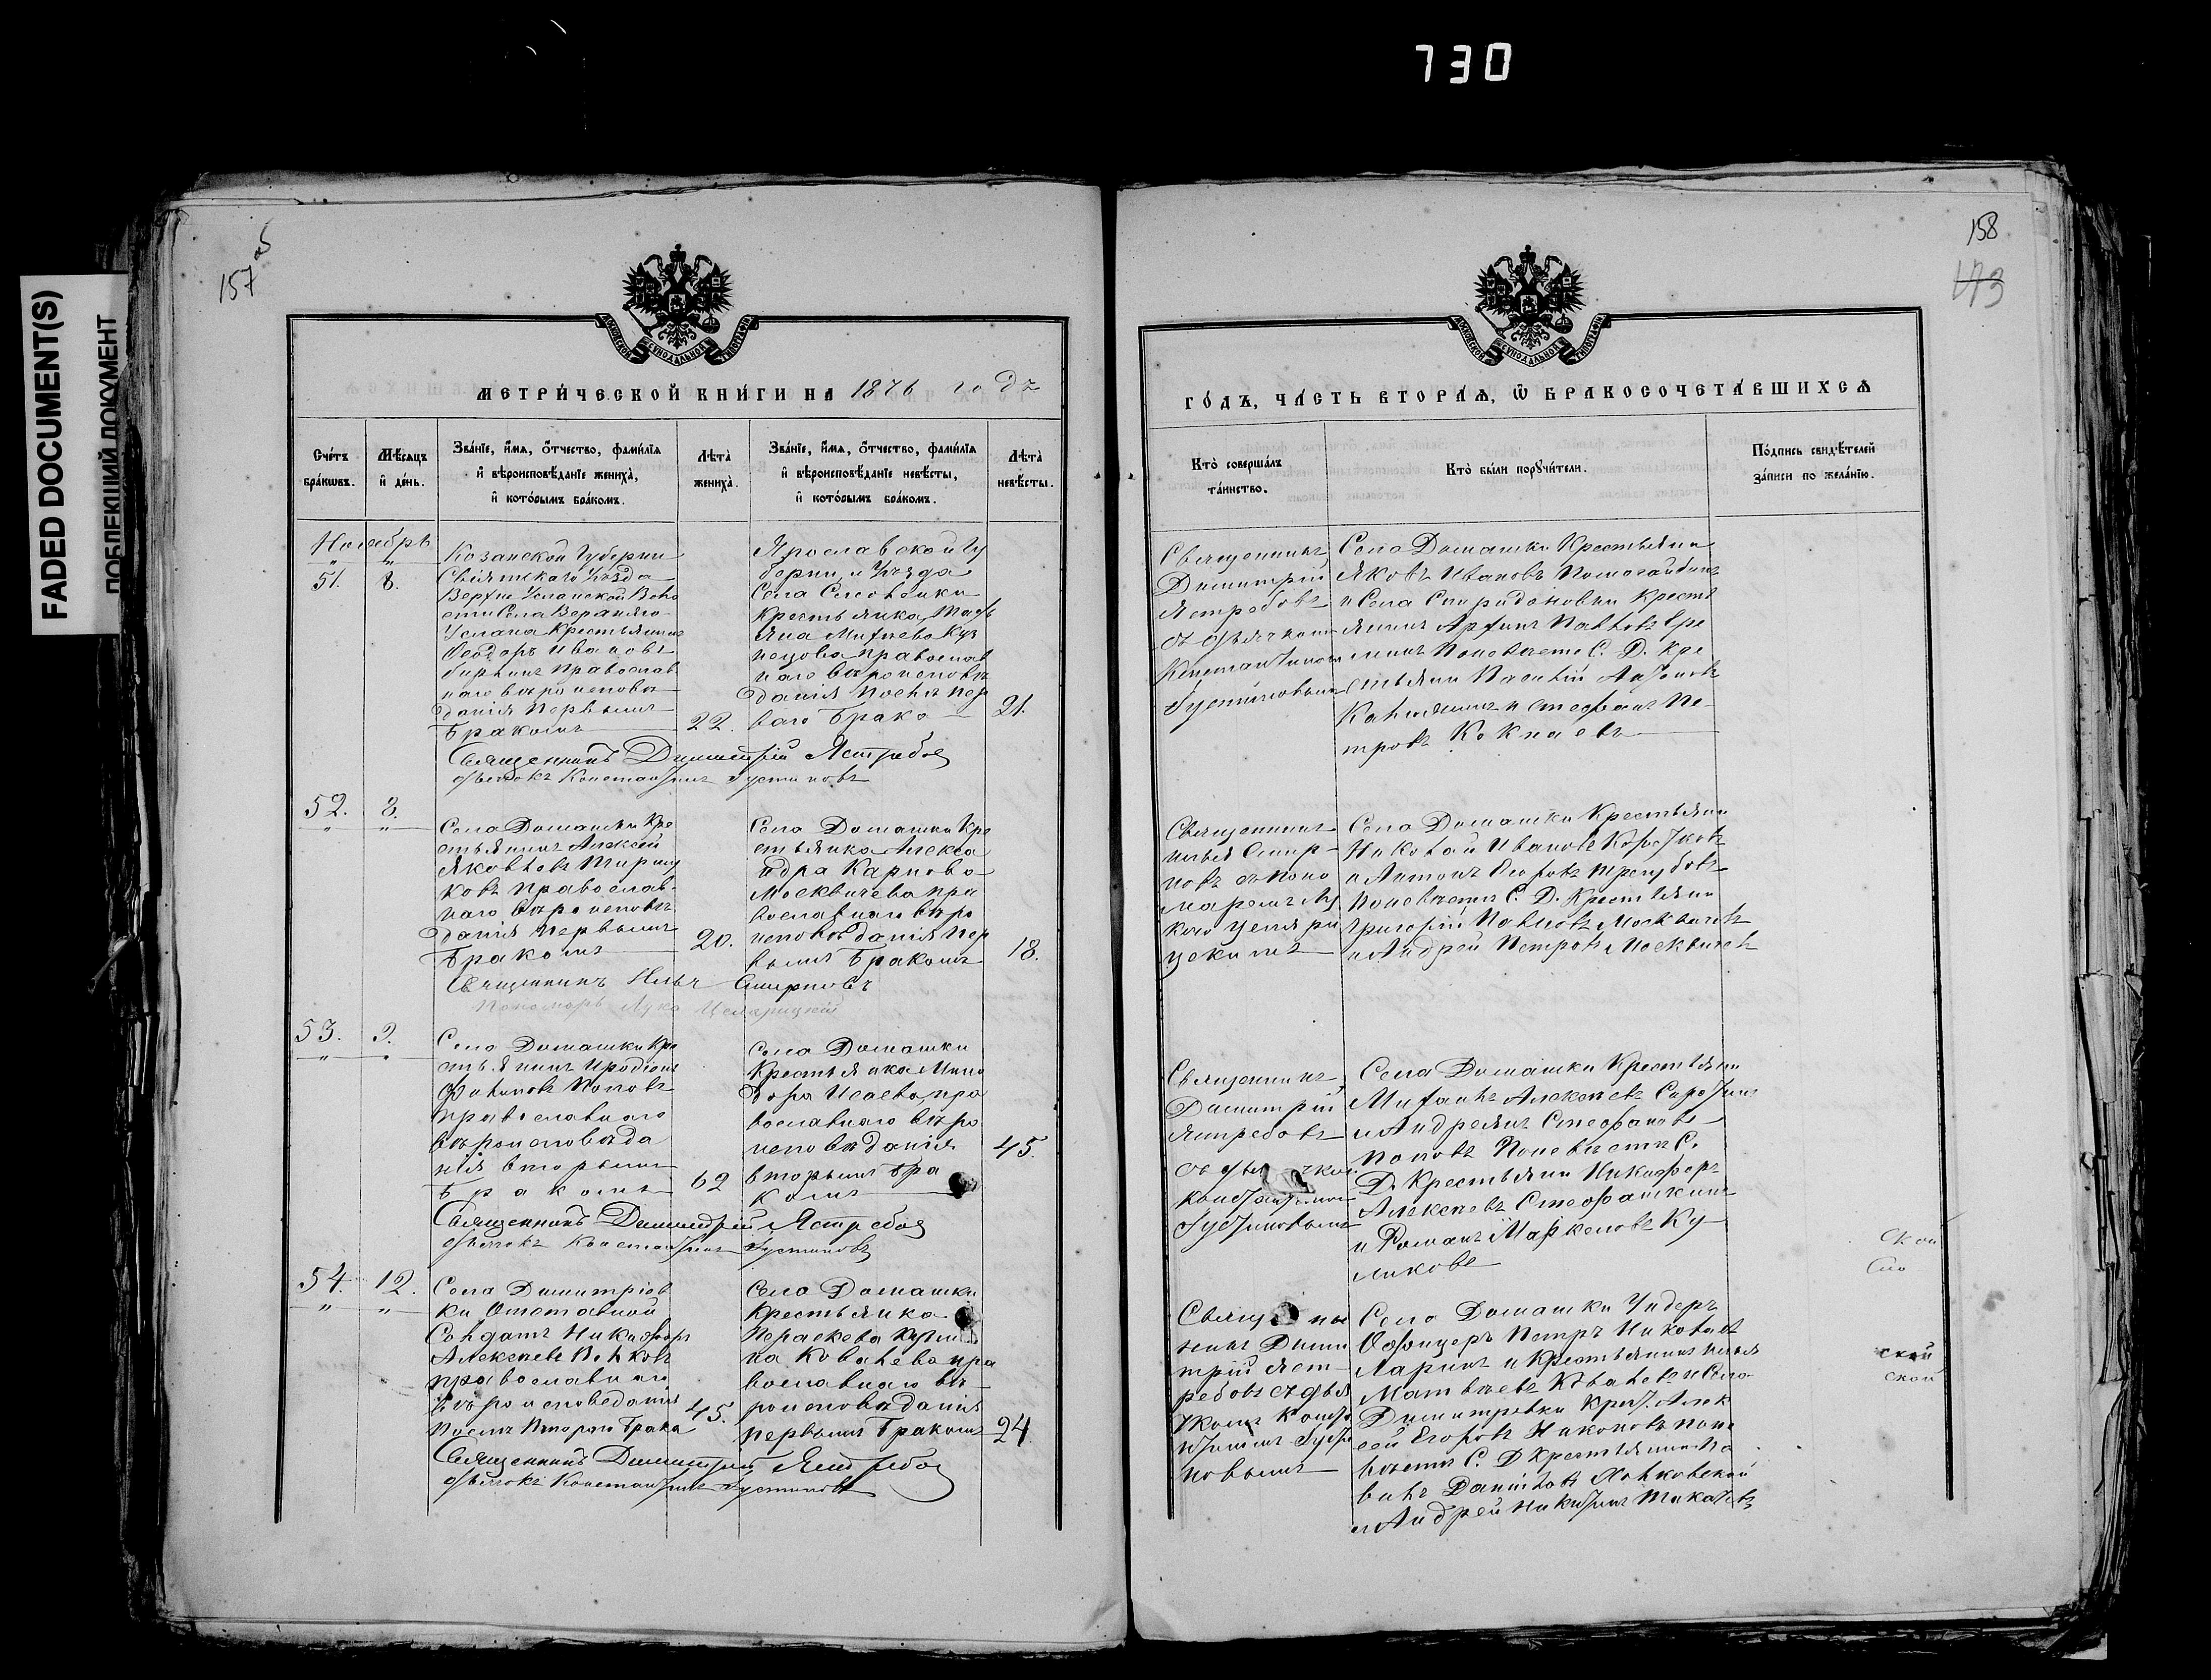 730
FADED DOCUMENT(S)
ПОБЛЕКШИЙ ДОКУМЕНТ
157 об
МЕТРИ́ЧЕСКОЙ КНИ́ГИ НА 1876 годъ
Сче́тъ бра́кѡвъ.
Мѣ́сѧцъ и҆ де́нь.
Зва́нїе, и҆́мѧ, ѻ҆́тчество, фами́лїѧ и҆ вѣроисповѣ́данїе жениха̀, и҆ кото́рымъ бра́комъ.
Лѣ́та жениха̀.
Зва́нїе, и҆́мѧ, ѻ҆́тчество, фами́лїѧ и҆ вѣроисповѣ́данїе невѣ́сты, и҆ кото́рымъ бра́комъ.
Лѣ́та невѣ́сты.
Ноябрь
51.
8.
Казанской Губерніи
Свіяжскаго Уѣзда
Верхне Услонской Воло
сти Села Верхняго
Услона Крестьянинъ
Ѳеодоръ Ивановъ
православ
наго вѣроисповѣ
данія Первымъ
Бракомъ
22.
Ярославской Гу
берніи и Уѣзда
Села
Крестьянка
Куз
нецова Православ
наго Вѣроисповѣ
данія Послѣ Пер
ваго Брака
21.
Священникъ Димитрій Ястребовъ
дьячокъ Константинъ Густиновъ
52.
8.
Села Домашки Кре
стьянинъ Алексій
Яковлевъ
ковъ Православ
наго Вѣроисповѣ
данія Первымъ
Бракомъ
20.
Села Домашки Кре
стьянка Алекса
ндра Карпова
Москвичева пра
вославнаго вѣро
исповѣданія Пер
вымъ Бракомъ
18.
Священникъ Илья Смирновъ
Пономарь Лука Целярицкій
53.
9.
Села Домашки Кре
стьянинъ Иродіонъ
Поповъ
Православнаго
Вѣроисповѣда
нія вторымъ
Бракомъ
62
Села Домашки
Крестьянка Мино
дора Исаева, пра
вославнаго вѣро
исповѣданія
вторымъ Бра
комъ
45.
Священникъ Димитрій Ястребовъ
дьячокъ Константинъ Густиновъ
54.
12.
Села Димитріев
ки Отставной
Солдатъ Никифоръ
Алексѣевъ Волковъ
православнаго
Вѣроисповеданія
Послѣ Втораго Брака
45.
Села Домашки
Крестьянка
Параскева Кузми
на Ковалева пра
вославнаго вѣ
роисповѣданія
первымъ Бракомъ
24.
Священникъ Димитрій Ястребовъ
дьячокъ Константинъ Густиновъ
158
173
ГО́ДЪ, ЧА́СТЬ ВТОРА́Ѧ, Ѽ БРАКОСОЧЕТА́ВШИХСѦ
Кто̀ соверша́лъ та́инство.
Кто̀ бы́ли порꙋчи́тели.
По́дпись свидѣ́телей за́писи по жела́нїю.
Священникъ
Димитрій
Ястребовъ
съ дьячкомъ
Константиномъ
Густиновымъ
Села Домашки Крестьянинъ
Яковъ Ивановъ Помогайбинъ
и Села Спиридоновки Кресть
янинъ Павловъ Ере
минъ Поневѣстѣ С. Д. Кре
стьяни
и Стефанъ Пе
тровъ Кокнаевъ
Священникъ
Илья Смир
новъ съ Поно
маремъ Лу
кою Целяри
цкимъ
Села Домашки Крестьяни
Николай Ивановъ Коротковъ
и Антонъ
Поневѣстѣ С. Д. Крестьяни
Григорій Павловъ Москвичевъ
и Андрей Петровъ Москвичевъ
Священникъ
Димитрій
Ястребовъ
съ дьячком
Константиномъ
Густиновымъ
Села Домашки Крестьяни
Михаилъ Алексѣевъ
и Андреянъ Стефановъ
Поповъ Поневѣстѣ С.
Д. Крестьяни Никифоръ
Алексѣевъ Стефашкинъ
и Романъ Маркеловъ Ку
ликовъ
Свяще нн
икъ Дими
трій Яст
ребовъ съ дья
чкомъ Конста
нтиномъ Густи
новымъ
Села Домашки Ундеръ
Офицеръ Петръ Николаевъ
Ларинъ и Крестьянинъ Илья
Матвѣевъ Ковалевъ и Села
Димитревки Крест. Алек
сѣй Егоровъ Никоновъ поне
вѣстѣ С. Д Крестьянинъ Па
велъ Даниловъ
и Андрей Никитинъ
ской
Сло
ской
ской